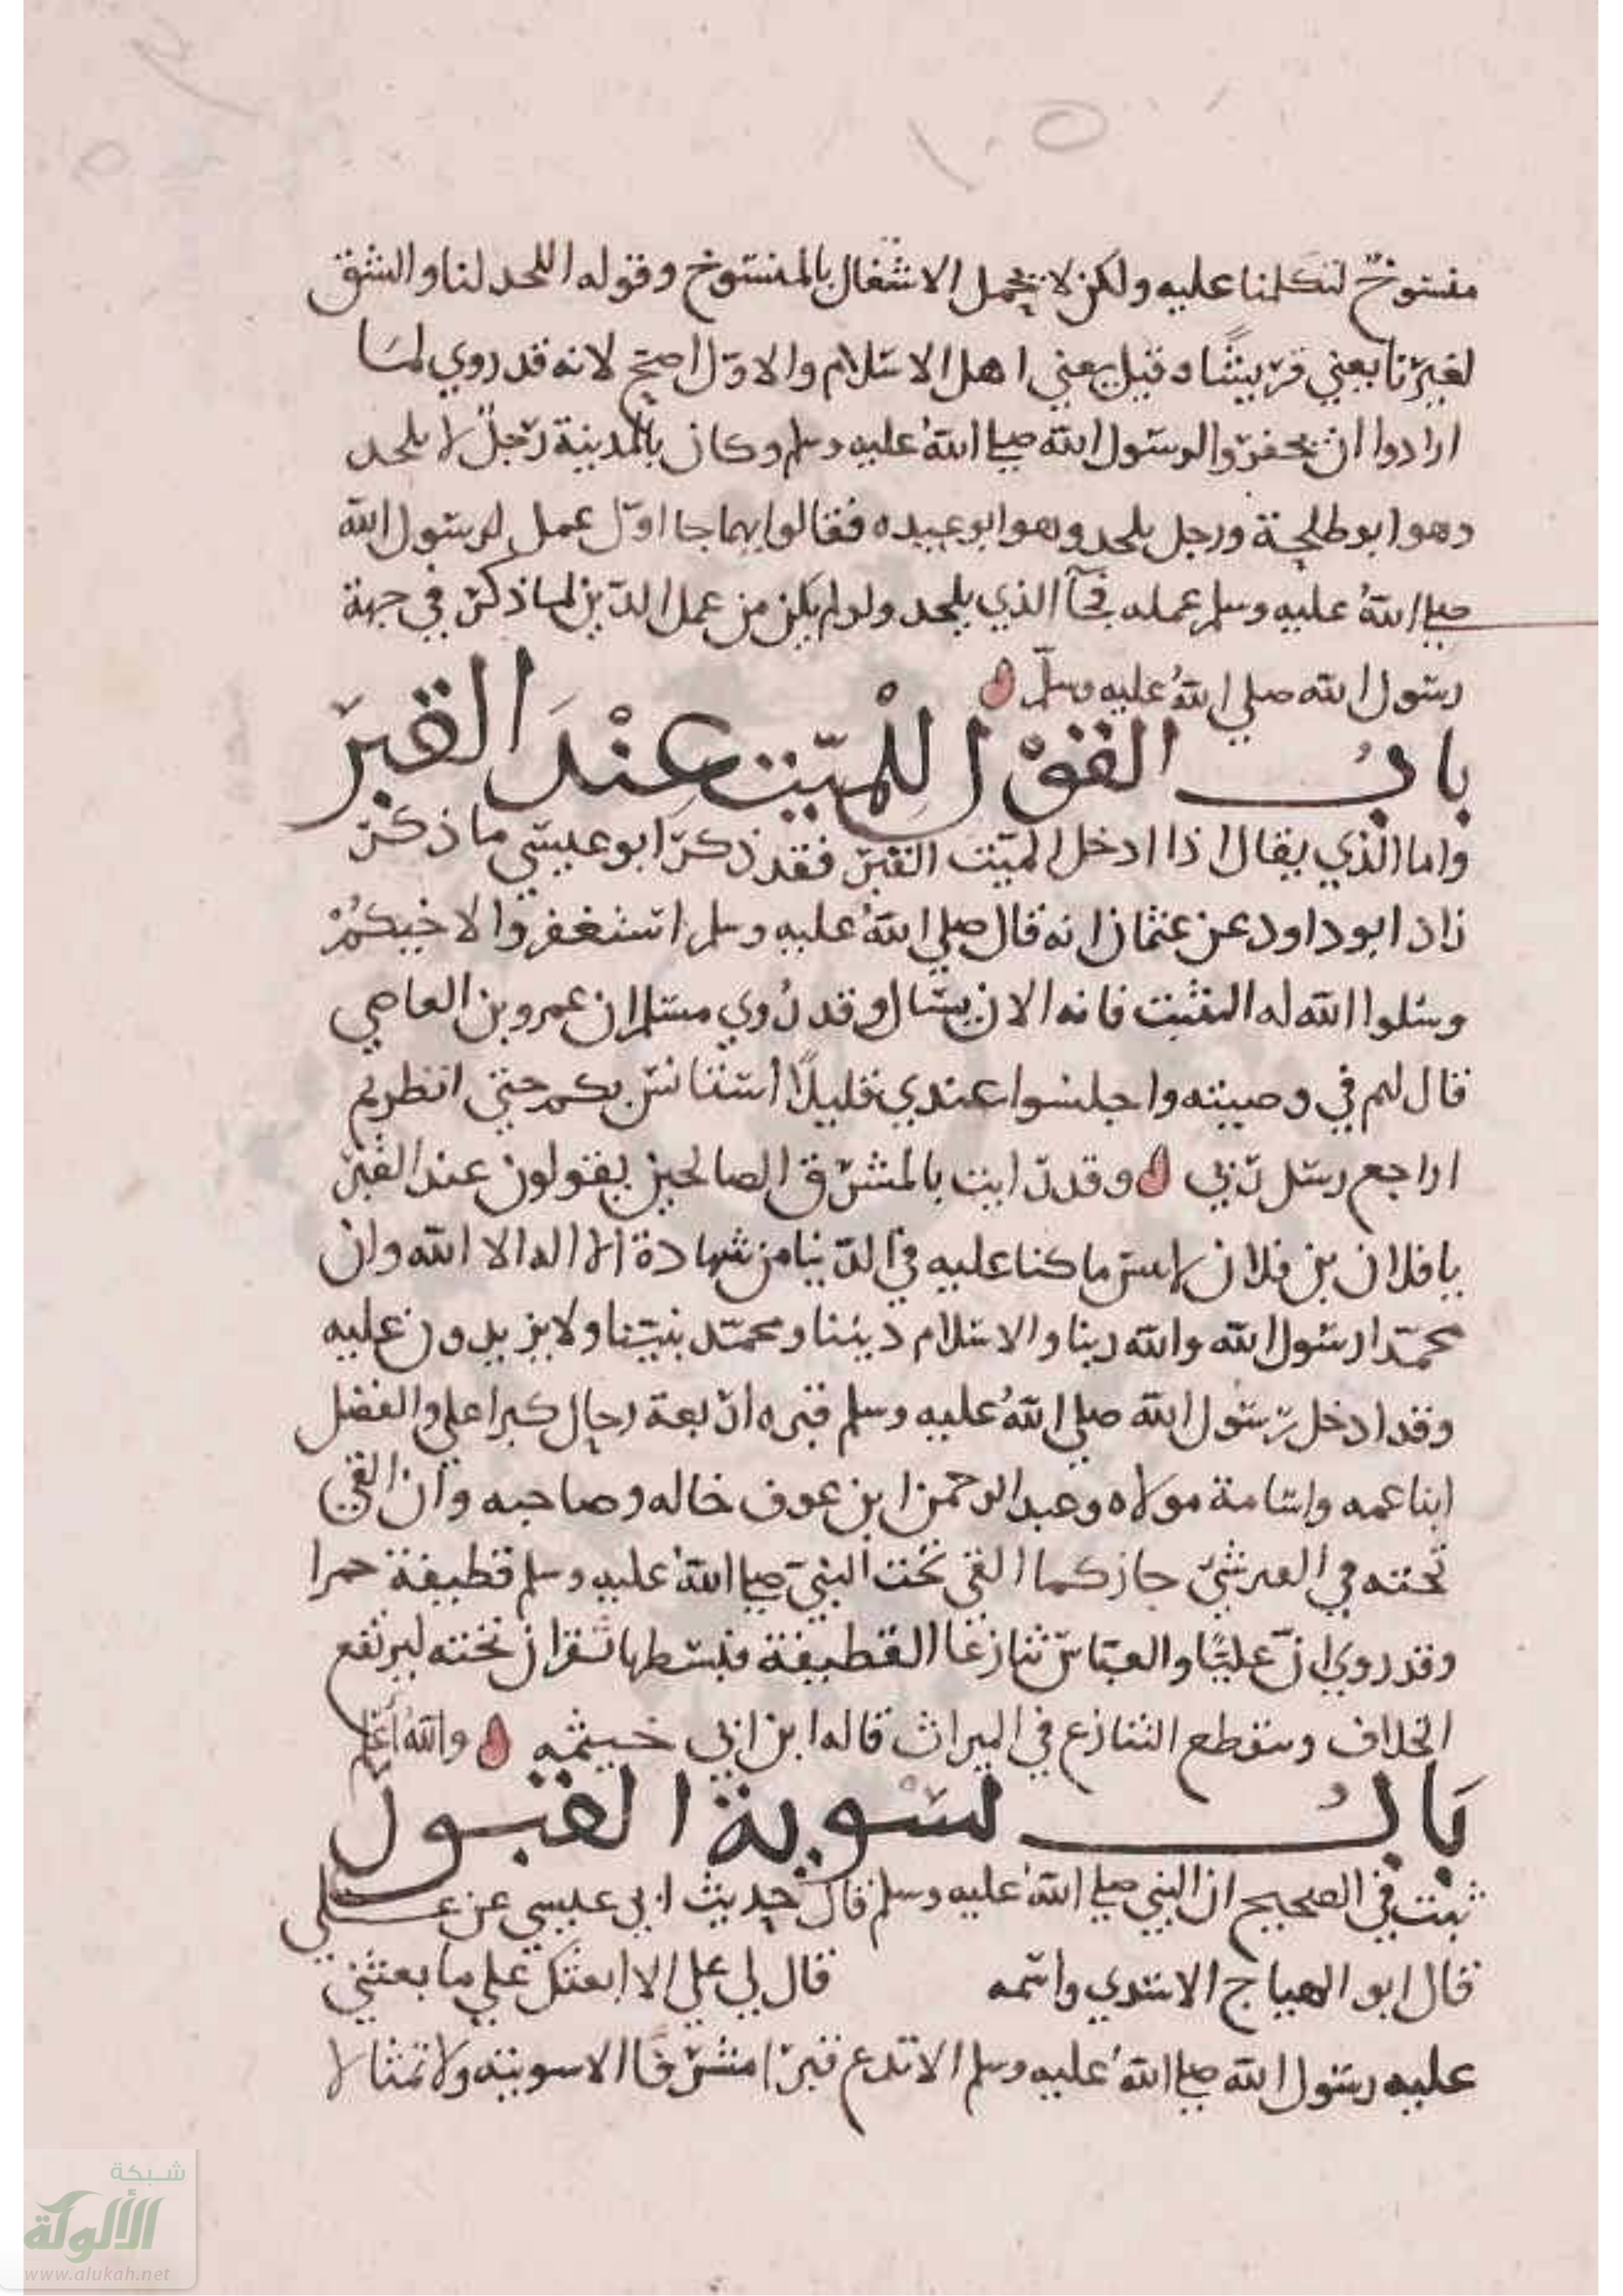 منسوخ لتكلمنا عليه ولكن لا يجمل الاشغال بالمنسوخ وقوله اللحد لنا والشق
لغيرنا يعني قريشا وقيل يعني اهل الاسلام والاول اصح لانه قد روي لما
ارادوا ان يحفروا لرسول الله صلي الله عليه وسلم وكان بالمدينة رجل لا يلحد
وهو ابو طلحة ورجل يلحد وهو ابو عبيده فقالوا ايهما جا اول عمل لرسول الله
صلي الله عليه وسلم عمله فجآ الذي يلحد ولو لم يكن من عمل الدين لما ذكر في جهة
رسول الله صلي الله عليه وسلم
باب القول للميت عند القبر
واما الذي يقال اذا ادخل الميت القبر فقد ذكر ابو عيسي ما ذكر
زاد ابو داود عن عثمان انه قال صلي الله عليه وسلم استغفروا لاخيكم
وسلوا الله له التثبت فانه الان يسال وقد روي مسلم ان عمرو بن العاصي
قال لهم في وصيته واجلسوا عندي قليلا استانس بكم حتي انظر بم
اراجع رسل ربي وقد رايت بالمشرق الصالحين يقولون عند القبر
يا فلان بن فلان لا تنس ما كنا عليه في الدنيا من شهادة الا اله الا الله وان
محمدا رسول الله والله ربنا والاسلام ديننا ومحمد نبينا ولا يزيدون عليه
وقد ادخل رسول الله صلي الله عليه وسلم قبره اربعة رجال كبرا علي والفضل
ابنا عمه واسامة مولاه وعبد الرحمن ابن عوف خاله وصاحبه وان القي
تحته في القبر شي جاز كما القي تحت النبي صلي الله عليه وسلم قطيفة حمرا
وقد روي ان عليا والعباس تنازعا القطيفة فبسطها شقران تحته ليرتفع
الخلاف وينقطع التنازع في الميراث قاله ابن ابي خيثمه والله اعلم
باب تسوية القبور
ثبت في الصحيح ان النبي صلي الله عليه وسلم قال حديث ابي عيسي عن علي
قال ابو الهياج الاسدي واسمه قال لي علي الا ابعثك علي ما بعثني
عليه رسول الله صلي الله عليه وسلم الا تدع قبرا مشرفا الا سويته ولا تمثالا
شبكة
الألوكة
www.alukah.net